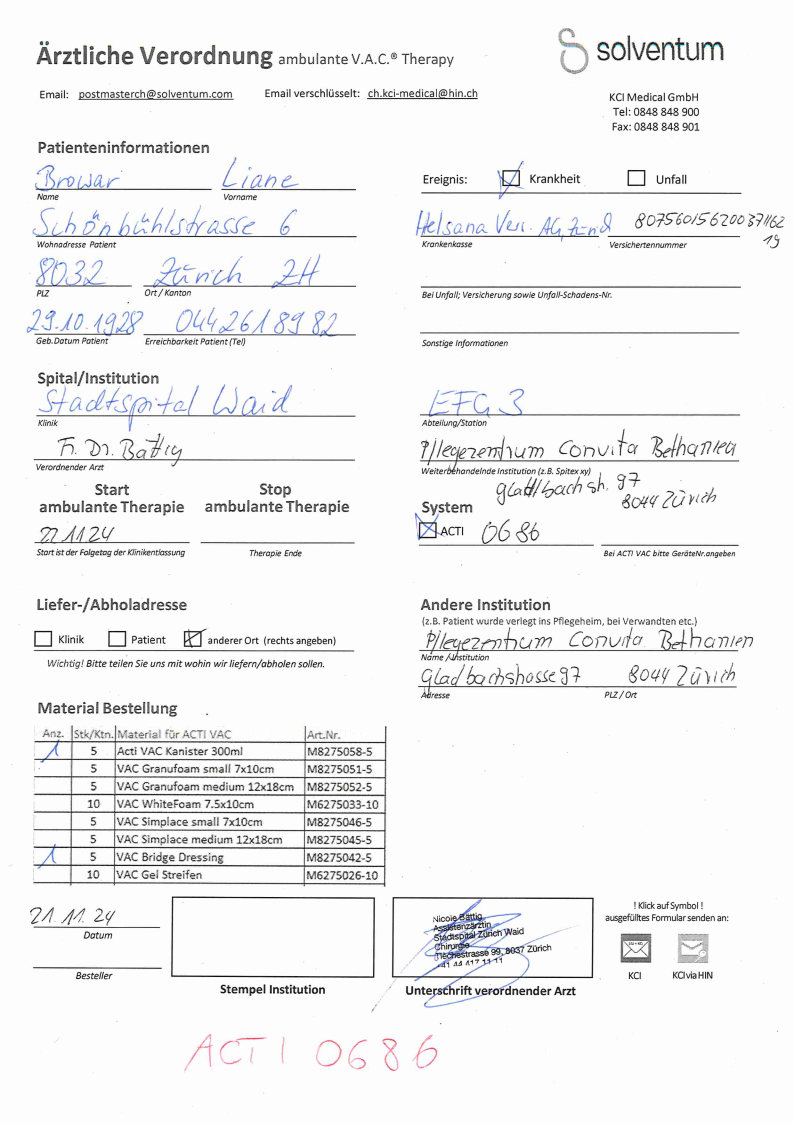 Ärztliche Verordnung ambulante V.A.C.® Therapy
solventum
Email: postmasterch@solventum.com Email verschlüsselt: ch.kci-medical@hin.ch
KCI Medical GmbH
Tel: 0848 848 900
Fax: 0848 848 901
Patienteninformationen
Browar Liane
Name Vorname
Ereignis: Krankheit Unfall
Schönbühlstrasse 6
Wohnadresse Patient
Helsana Vers. AG, Zürich 80756015620037116219
Krankenkasse Versichertennummer
8032 Zürich ZH
PLZ Ort / Kanton
Bei Unfall; Versicherung sowie Unfall-Schadens-Nr.
29.10.1928 044 261 89 82
Geb.Datum Patient Erreichbarkeit Patient (Tel)
Sonstige Informationen
Spital/Institution
Stadtspital Waid
Klinik
EFG 3
Abteilung/Station
Fr. Dr. Bättig
Verordnender Arzt
Pflegezentrum Convita Bethanien
Weiterbehandelnde Institution (z.B. Spitex xy)
Gladbachstr. 97
8044 Zürich
Start
ambulante Therapie
Stop
ambulante Therapie
System
22.11.24
ACTI 0686
Start ist der Folgetag der Klinikentlassung Therapie Ende
Bei ACTI VAC bitte GeräteNr.angeben
Liefer-/Abholadresse
Klinik Patient anderer Ort (rechts angeben)
Wichtig! Bitte teilen Sie uns mit wohin wir liefern/abholen sollen.
Andere Institution
(z.B. Patient wurde verlegt ins Pflegeheim, bei Verwandten etc.)
Pflegezentrum Convita Bethanien
Name /Institution
Gladbachstrasse 97 8044 Zürich
Adresse PLZ / Ort
Material Bestellung
Anz. Stk/Ktn. Material für ACTI VAC Art.Nr.
1 5 Acti VAC Kanister 300ml M8275058-5
5 VAC Granufoam small 7x10cm M8275051-5
5 VAC Granufoam medium 12x18cm M8275052-5
10 VAC WhiteFoam 7.5x10cm M6275033-10
5 VAC Simplace small 7x10cm M8275046-5
5 VAC Simplace medium 12x18cm M8275045-5
1 5 VAC Bridge Dressing M8275042-5
10 VAC Gel Streifen M6275026-10
21.11.24
Datum
Besteller
Stempel Institution
Nicole Bättig
Assistenzärztin
Stadtspital Zürich Waid
Chirurgie
Tièchestrasse 99, 8037 Zürich
Unterschrift verordnender Arzt
! Klick auf Symbol !
ausgefülltes Formular senden an:
KCI KCI via HIN
ACTI 0686